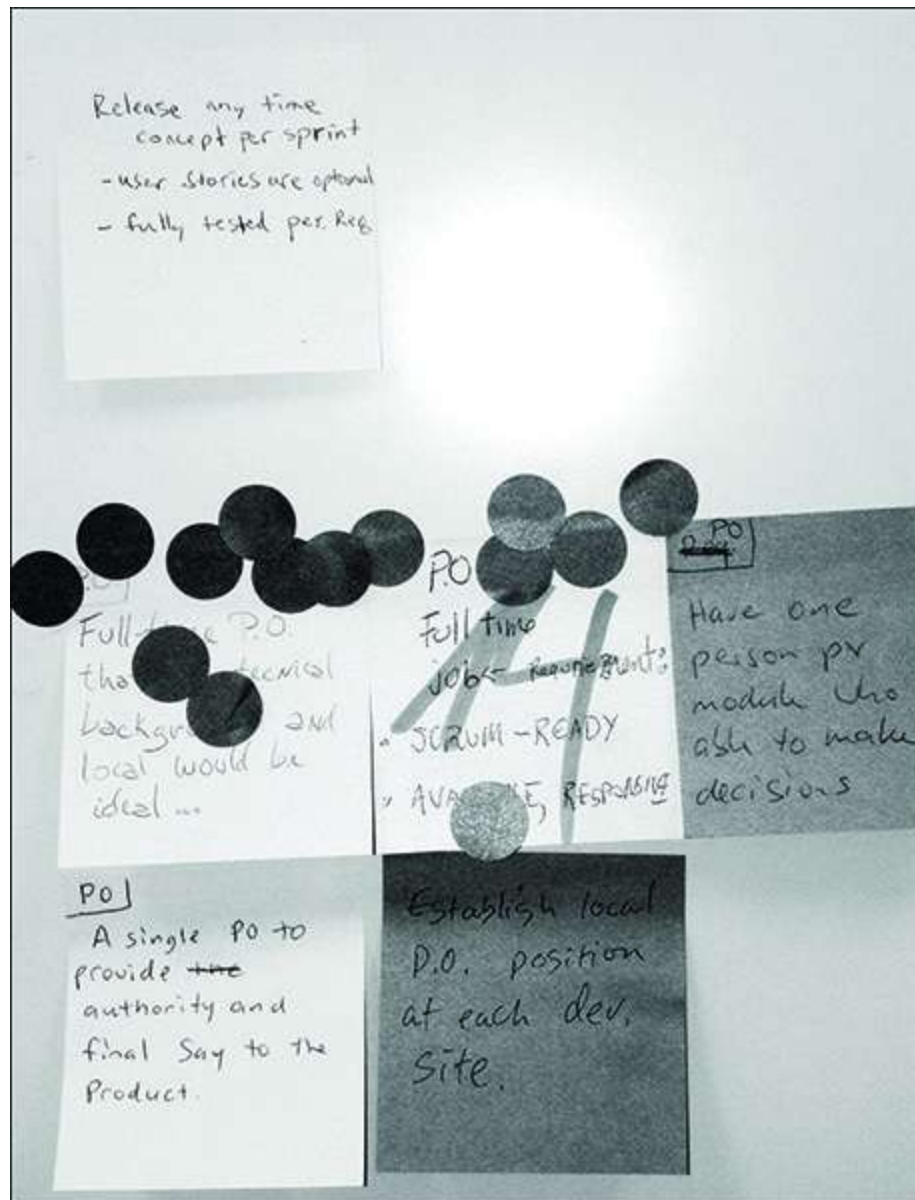 Release any time
concept per sprint
- user stories are optional
- fully tested per. Req
Full-time P.O.
tha technical
backgr and
local would be
ideal ...
P.O
Full time
jobs - Requirement:
• SCRUM-READY
• AVA LE, RESPONSIVE
PO
Have one
person pr
module who
able to make
decisions
PO
A single PO to
provide the
authority and
final say to the
Product.
Establish local
P.O. position
at each dev.
Site.